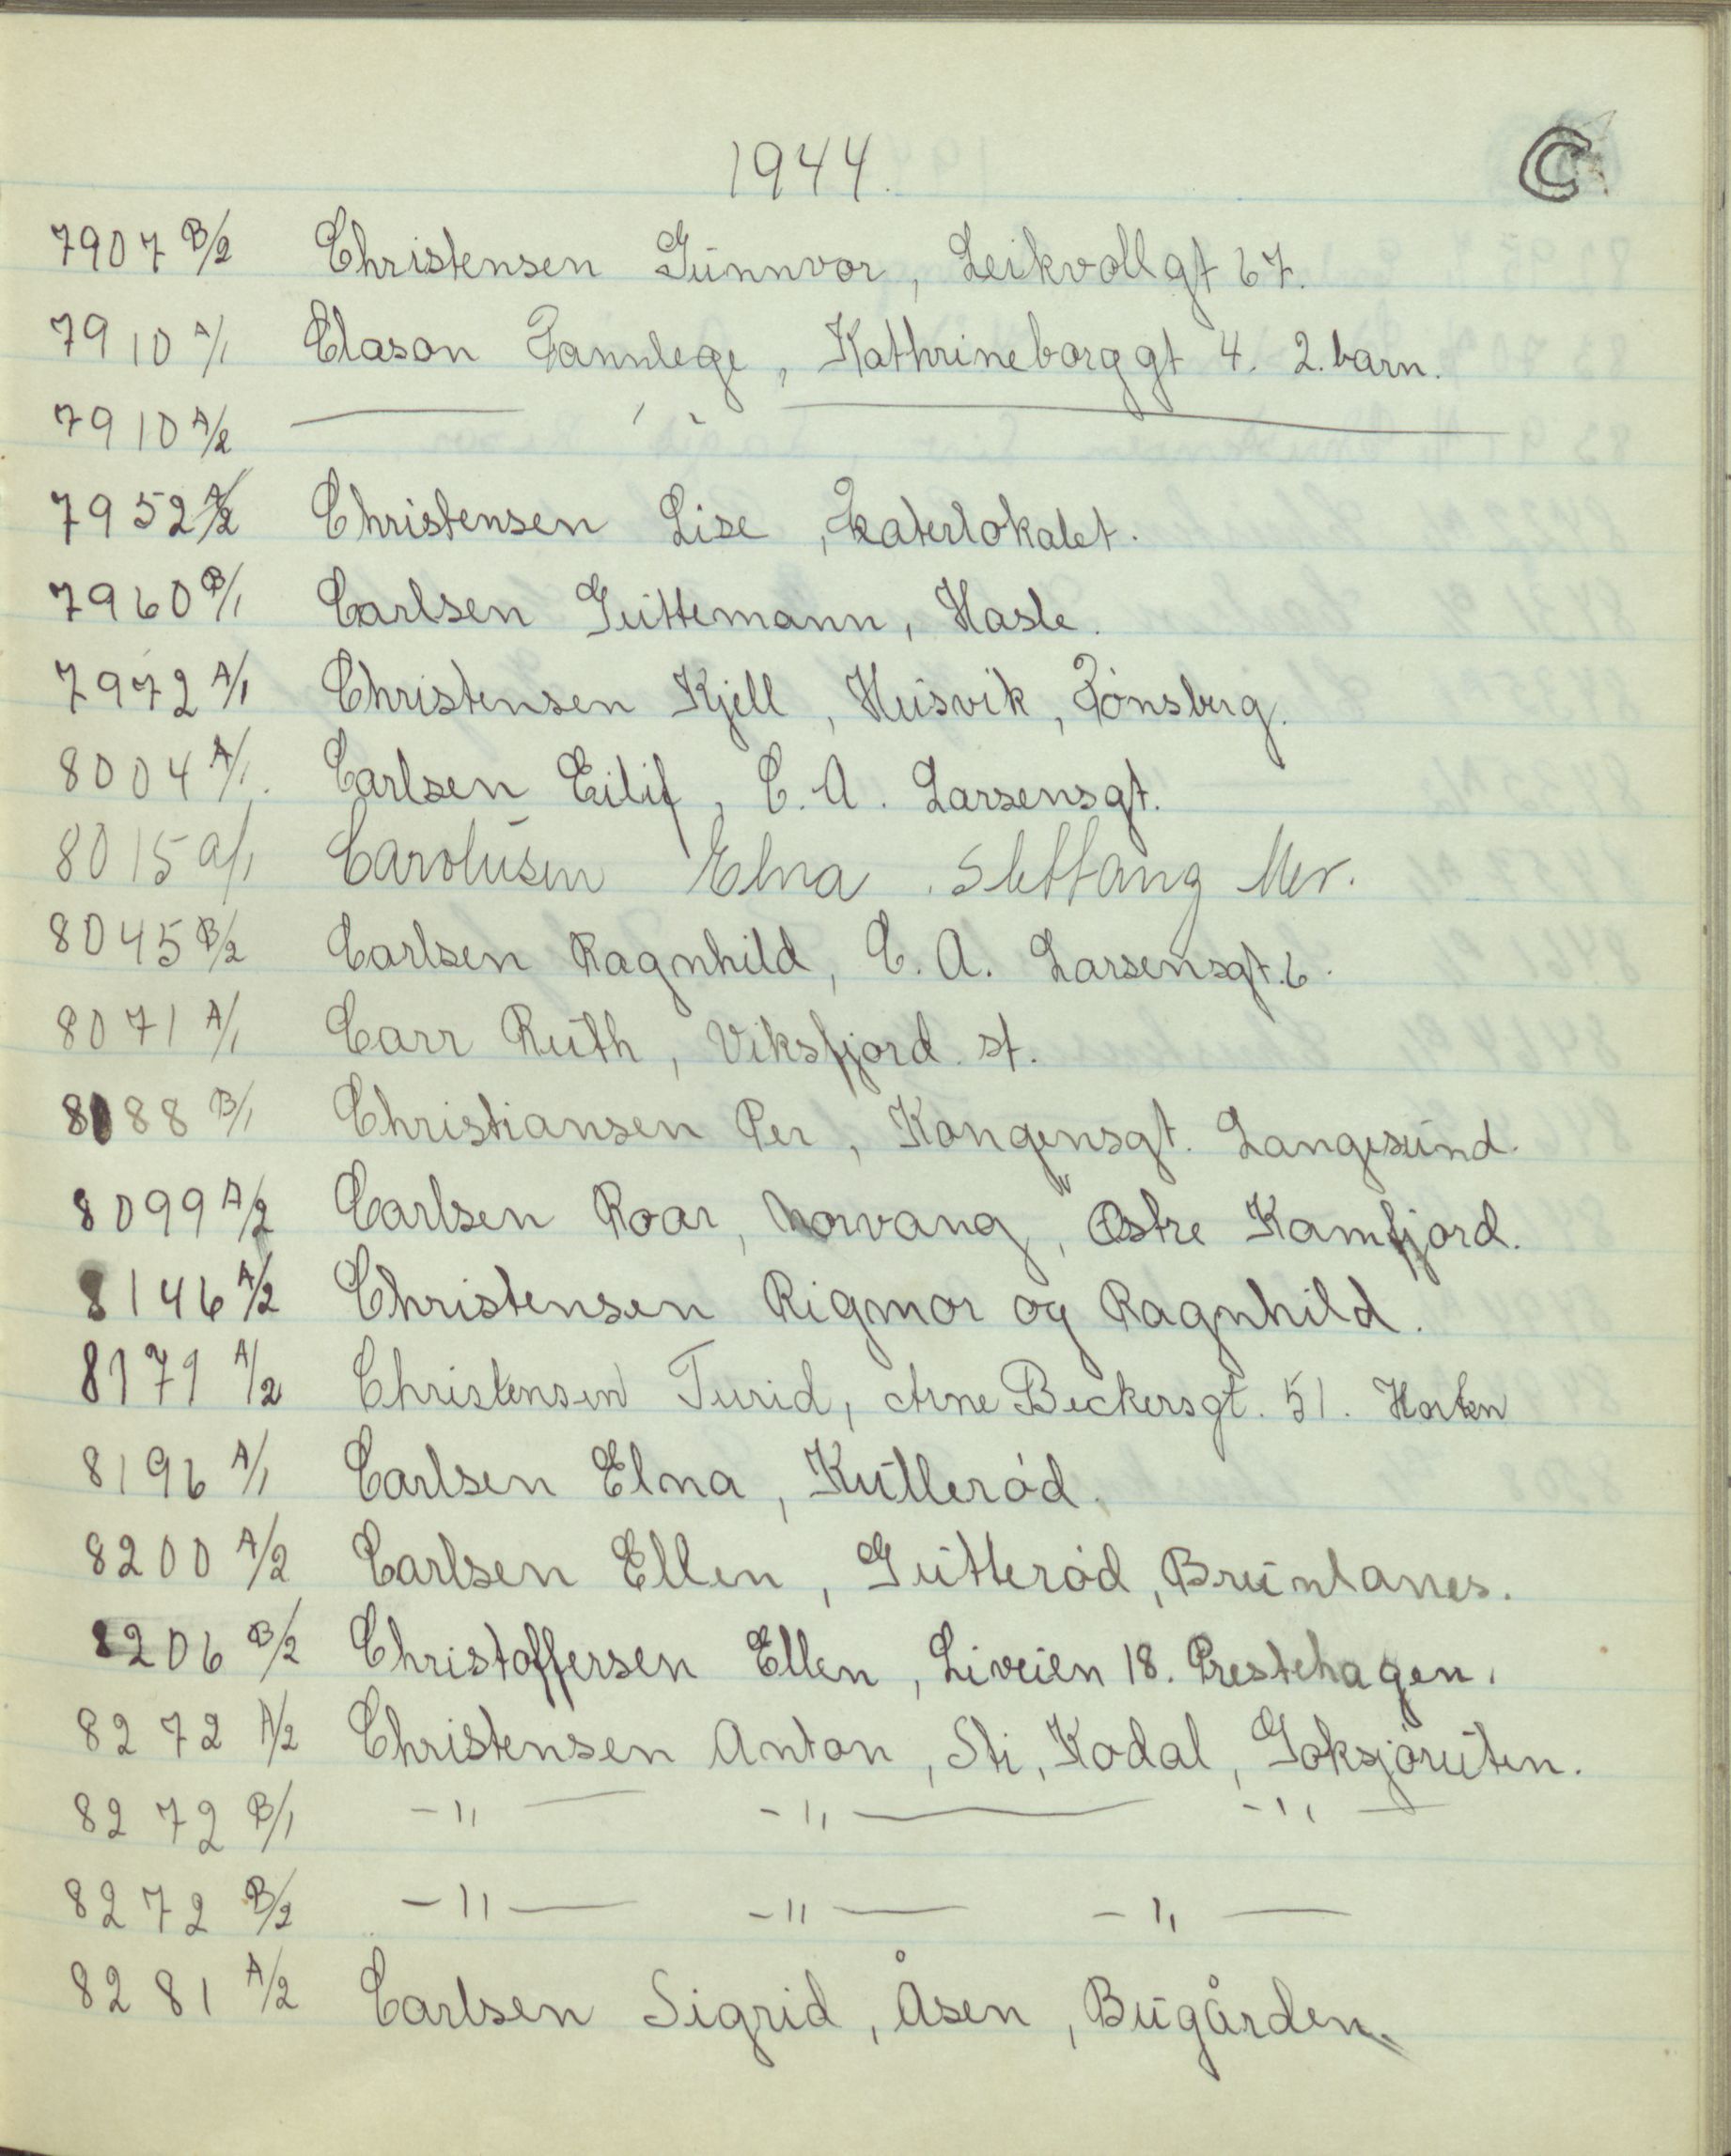 1944.
C
7907 B/2 Christensen Gunnvor, Leikvollgt 67.
7910 A/1 Clason Tannlege, Kathrineborggt 4. 2. barn.
7910 A/2 ——— ' ' ———
7952 A/2 Christensen Lise, Teaterlokalet.
7960 B/1 Carlsen Guttemann, Hasle.
7972 A/1 Christensen Kjell, Husvik, Tønsberg.
8004 A/1. Carlsen Eilif, C. A. Larsensgt.
8015 a/1 Carolusen Elna. Slettang Mer.
8045 B/2 Carlsen Ragnhild, C. A. Larsensgt. 6.
8071 A/1 Carr Ruth, Viksfjord. st.
8088 B/1 Christiansen Per, Kongensgt. Langesund.
8099 A/2 Carlsen Roar, Norvang, Østre Kamfjord.
8146 A/2 Christensen Rigmor og Ragnhild.
8171 A/2 Christensen Turid, Arne Beckersgt. 51. Horten
8196 A/1 Carlsen Elna, Kutlerød.
8200 A/2 Carlsen Ellen, Gutterød, Brunlanes.
8206 B/2 Christoffersen Ellen, Liveien 18. Prestehagen.
8272 A/2 Christensen Anton, Sti, Kodal, Goksjøruten.
8272 B/1 -"— -"— -"—
8272 B/2 -"— -"— -"—
8281 A/2 Carlsen Sigrid, Åsen, Bugården.